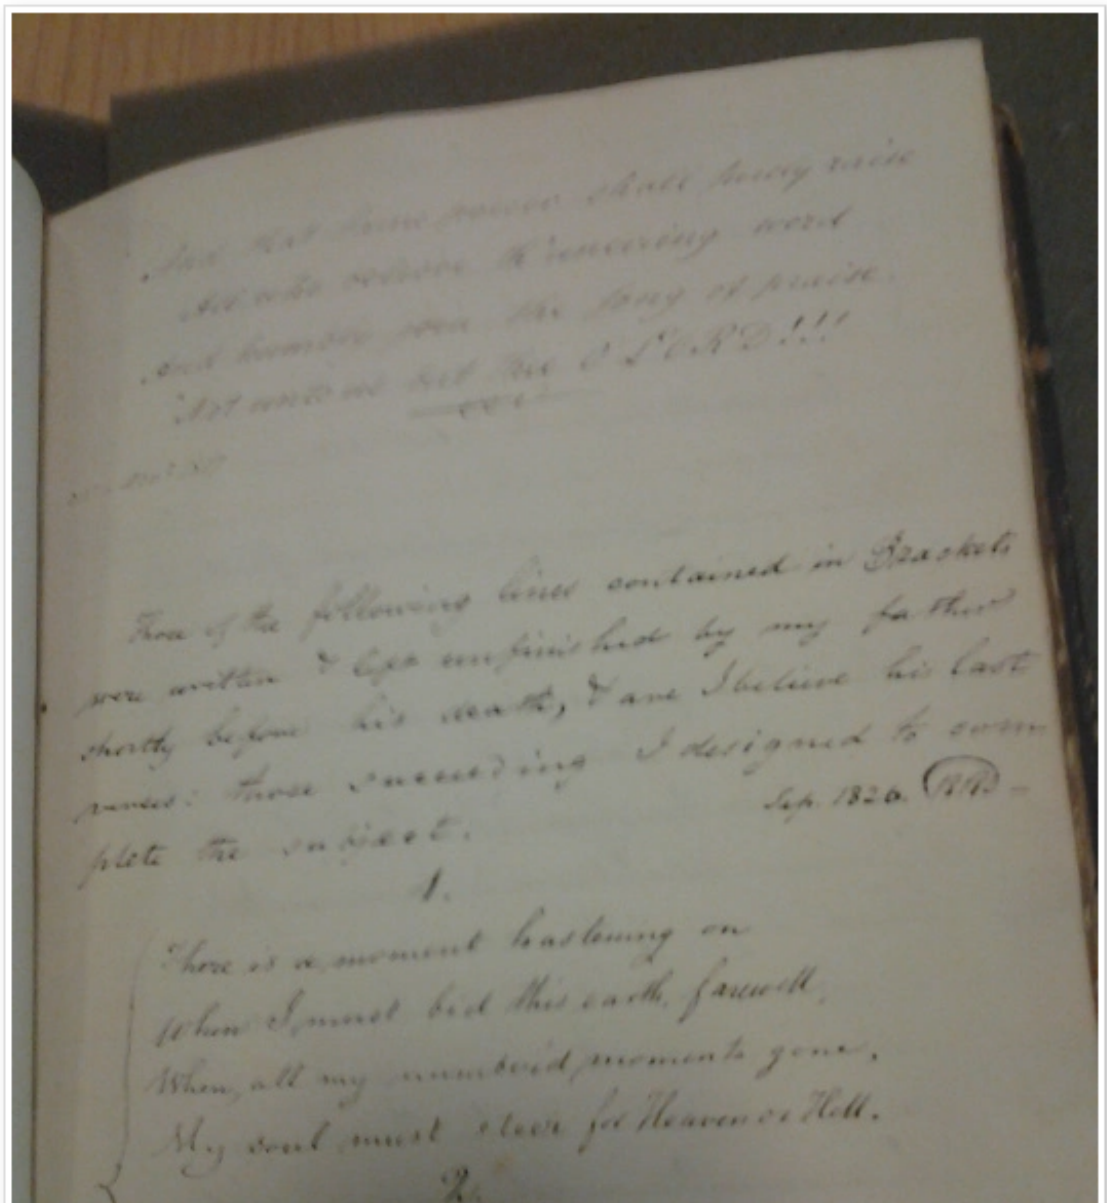 And that same power shall surely raise
All who believe th'unerring word
And humbly join the song of praise.
"Not unto us but thee O LORD!!!
Those of the following lines contained in Brackets
were written & left unfinished by my father
shortly before his death, & are I believe his last
verses: those succeeding I designed to com
plete the subject.
Sep. 1826. RR
1.
There is a moment hastening on
When I must bid this earth farewell,
When, all my numberd moments gone,
My soul must steer for Heaven or Hell.
2.